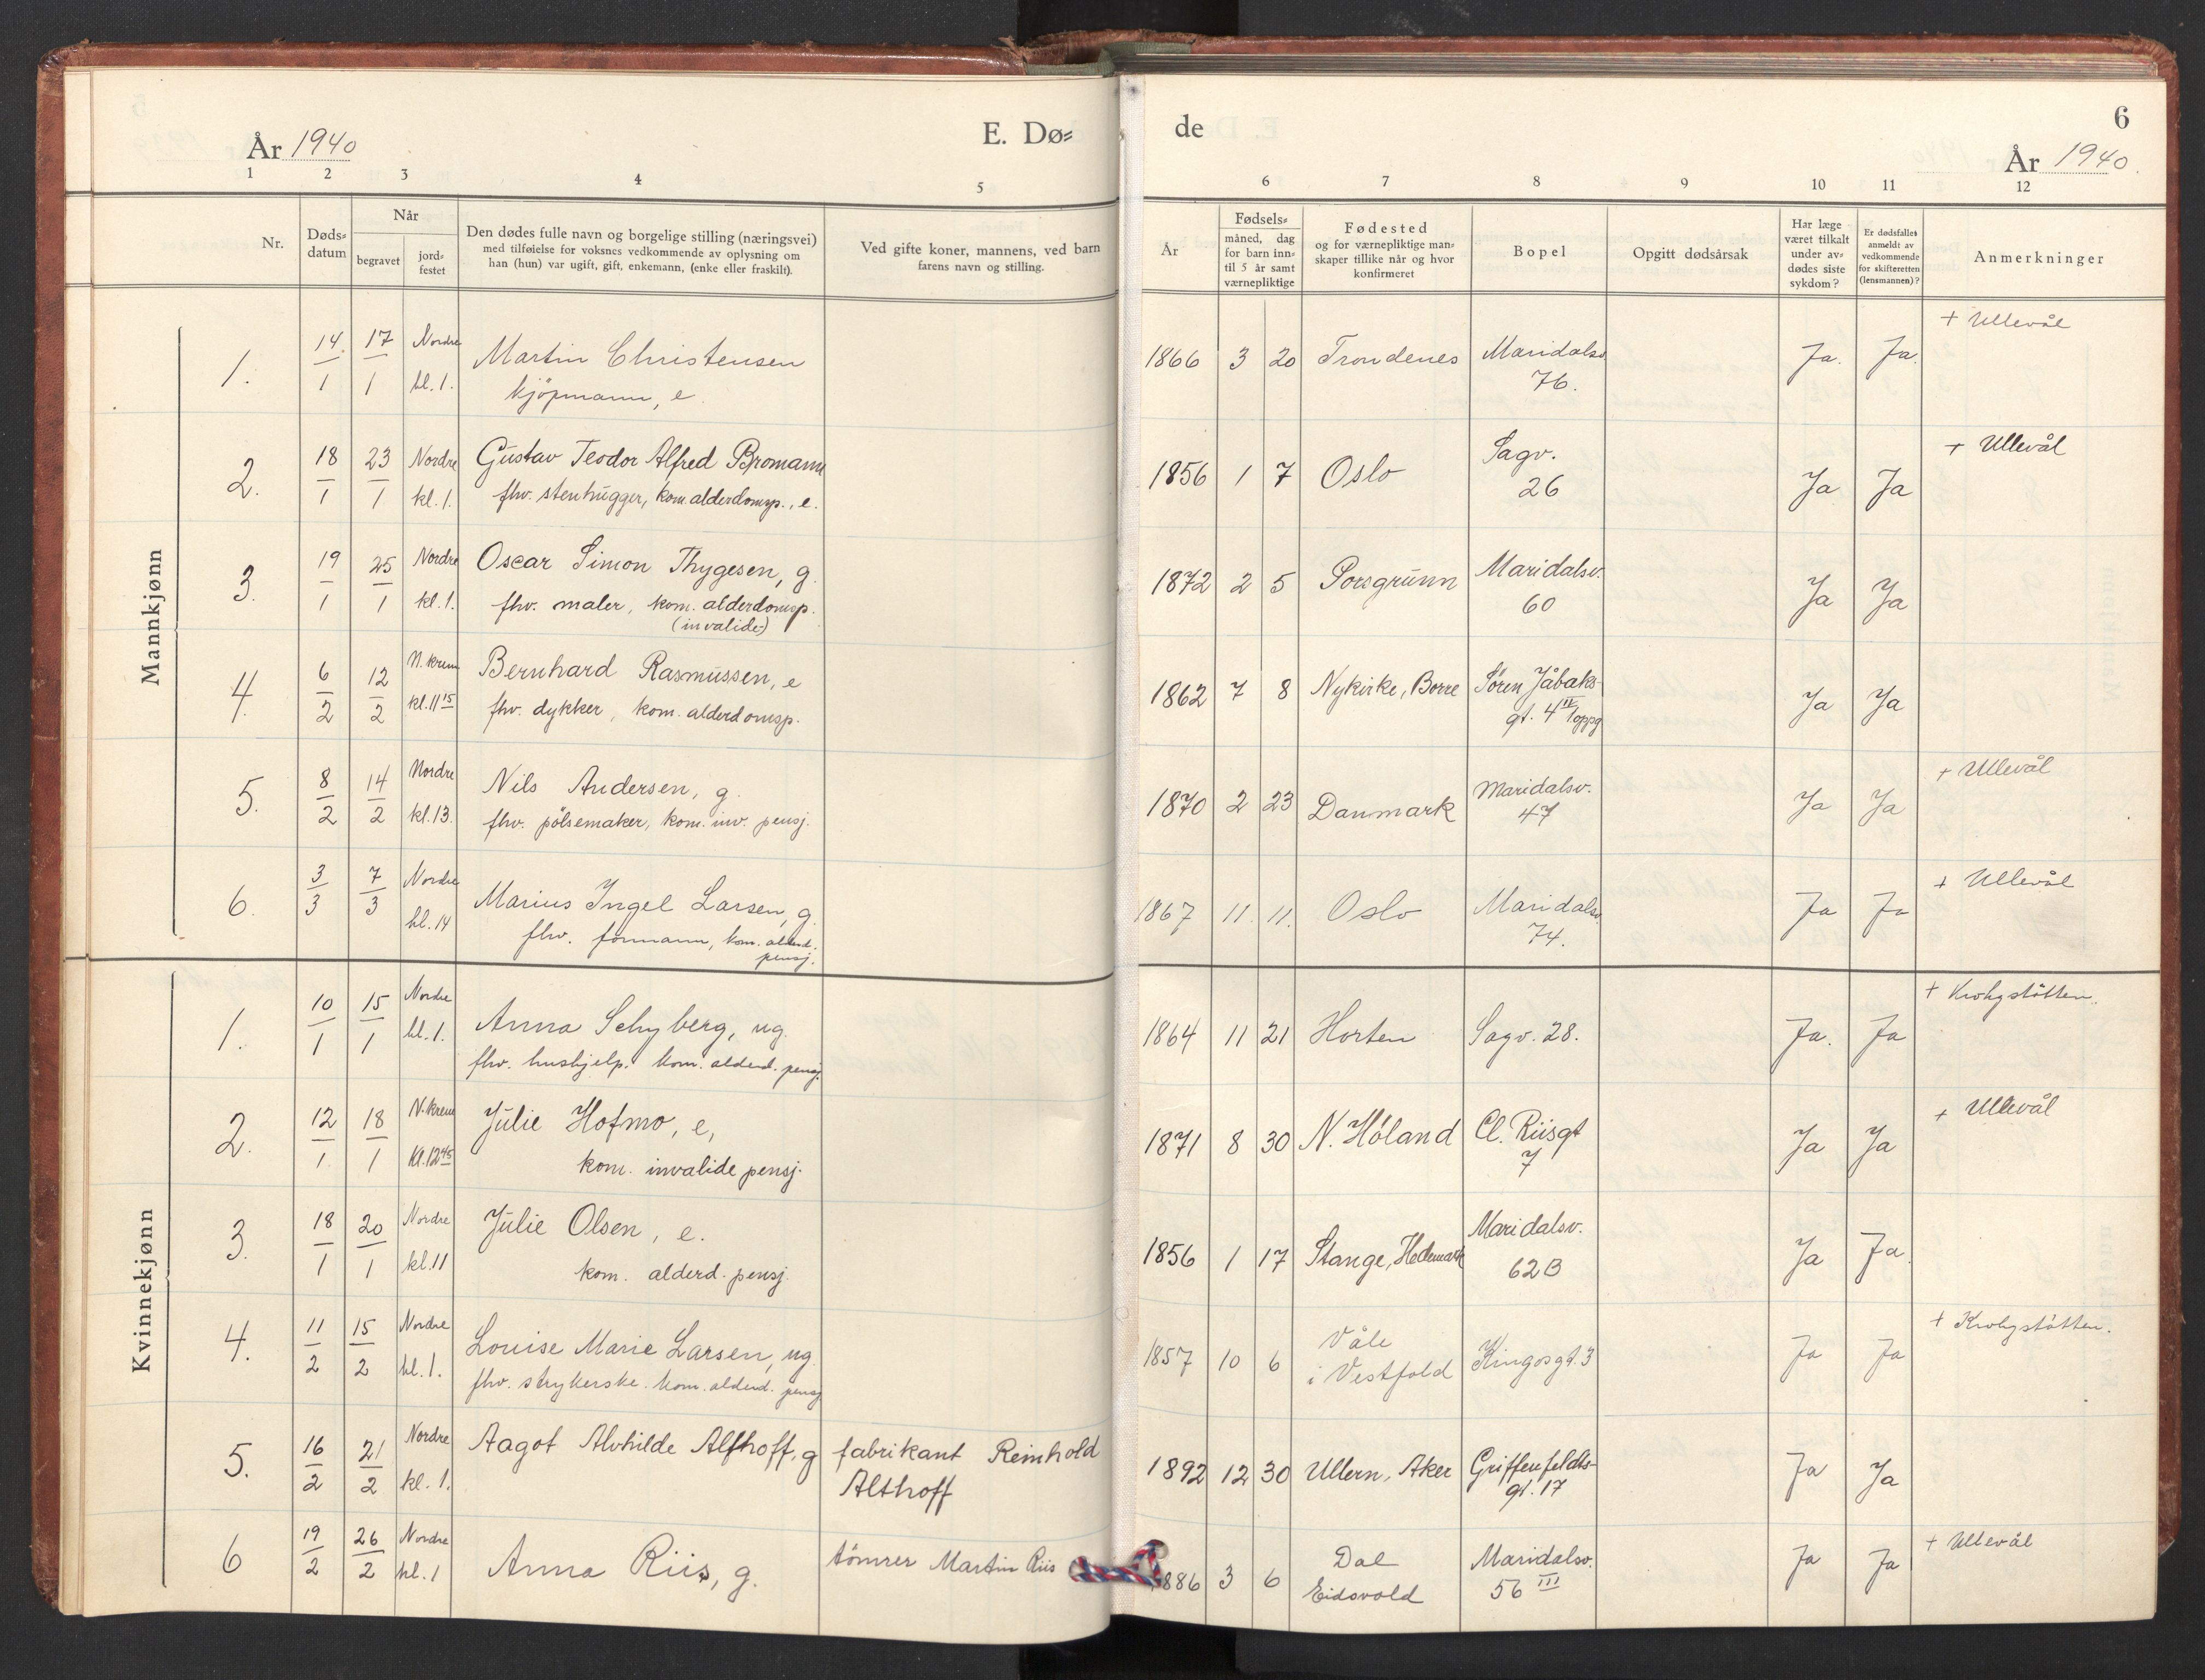 År 1940
E. Dø=
1 2 3 4 5
Nr.
Døds=
datum
Når
begravet
jord=
festet
Den dødes fulle navn og borgelige stilling (næringsvei)
med tilføielse for voksnes vedkommende av oplysning om
han (hun) var ugift, gift, enkemann, (enke eller fraskilt).
Ved gifte koner, mannens, ved barn
farens navn og stilling.
de
6
År 1940
6 7 8 9 10 11 12
År
Fødsels=
måned, dag
for barn inn=
til 5 år samt
værnepliktige
Fødested
og for værnepliktige man=
skaper tillike når og hvor
konfirmeret
Bopel
Opgitt dødsårsak
Har læge
været tilkalt
under av=
dødes siste
sykdom?
Er dødsfallet
anmeldt av
vedkommende
for skifteretten
(lensmannen)?
Anmerkninger
Mannkjønn
1. 14/1 17/1 Nordre kl. 1. Martin Christensen
kjöpmann, e.
1866 3 20 Trondenes Maridalsv. 76. Ja. Ja. + Ullevål
2. 18/1 23/1 Nordre kl. 1. Gustav Teodor Alfred Bromann
fhv. stenhugger, kom. alderdomsp., e.
1856 1 7 Oslo Sagv. 26 Ja Ja + Ullevål
3. 19/1 25/1 Nordre kl. 1. Oscar Simon Thygesen, g.
fhv. maler, kom. alderdomsp.
(invalide)
1872 2 5 Porsgrunn Maridalsv. 60 Ja Ja
4. 6/2 12/2 N. krem kl. 11 15 Bernhard Rasmussen, e
fhv. dykker, kom. alderdomsp.
1862 7 8 Nykirke, Borre Søren Jåbaks- gt. 4 II oppg Ja Ja
5. 8/2 14/2 Nordre kl. 13. Nils Andersen, g.
fhv. pölsemaker, kom. inv. pensj.
1870 2 23 Danmark Maridalsv. 47 Ja Ja + Ullevål
6. 3/3 7/3 Nordre kl. 14 Marius Ingel Larsen, g.
fhv. formann, kom. alderd.
pensj.
1867 11. 11. Oslo Maridalsv. 74. Ja Ja + Ullevål
Kvinnekjønn
1. 10/1 15/1 Nordre kl. 1. Anna Schyberg, ug.
fhv. hushjelp. kom. alderd. pensj.
1864 11 21 Horten Sagv. 28. Ja. Ja + Krohgstötten.
2. 12/1 18/1 N. krem kl. 12 45 Julie Hofmo, e,
kom. invalide pensj.
1871 8 30 N. Höland Cl. Riisgt 7 Ja Ja + Ullevål
3. 18/1 20/1 Nordre kl. 11 Julie Olsen, e.
kom. alderd. pensj.
1856 1 17 Stange, Hedemark Maridalsv. 62B Ja Ja.
4. 11/2 15/2 Nordre kl. 1. Louise Marie Larsen, ug.
fhv. strykerske. kom. alderd. pensj
1857 10 6 Våle i Vestfold Kingosgt. 3 Ja Ja + Krohgstötten.
5. 16/2 21/2 Nordre kl. 1. Aagot Alvhilde Althoff, g fabrikant Reinhold
Althoff
1892 12 30 Ullern, Aker Griffenfeldts- gt. 17 Ja Ja
6 19/2 26/2 Nordre kl. 1 Anna Riis, g. tömrer Martin Riis
1886 3 6 Dal Eidsvold Maridalsv. 56 III Ja Ja + Ullevål